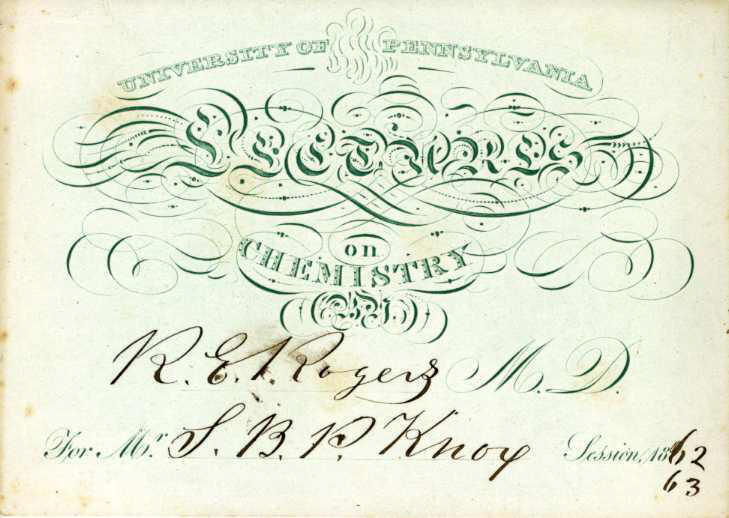 UNIVERSITY OF PENNSYLVANIA
LECTURES
on
CHEMISTRY
BY
R. E. Rogers M. D.
For Mr. S. B. P. Knox Session, 1862
63